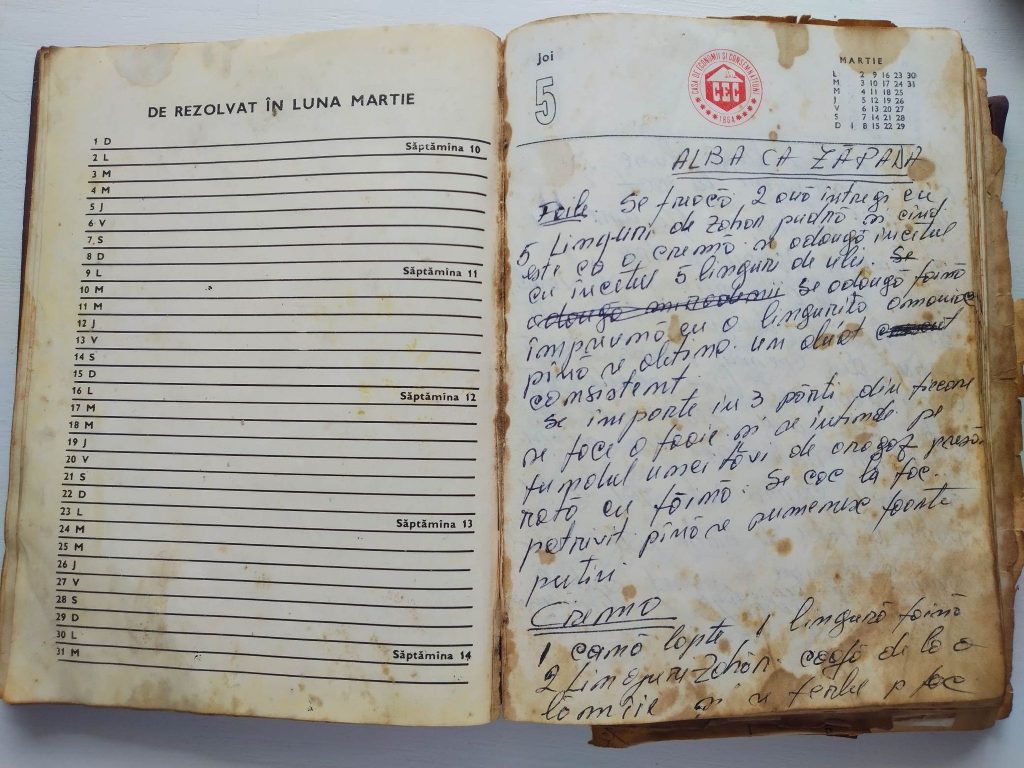 DE REZOLVAT ÎN LUNA MARTIE
1 D
Săptămina 10
2 L
3 M
4 M
5 J
6 V
7 S
8 D
Săptămina 11
9 L
10 M
11 M
12 J
13 V
14 S
15 D
Săptămina 12
16 L
17 M
18 M
19 J
20 V
21 S
22 D
Săptămina 13
23 L
24 M
25 M
26 J
27 V
28 S
29 D
Săptămina 14
30 L
31 M
Joi
5
CASA DE ECONOMII ȘI CONSEMNAȚIUNI
CEC
1864
MARTIE
L 2 9 16 23 30
M 3 10 17 24 31
M 4 11 18 25
J 5 12 19 26
V 6 13 20 27
S 7 14 21 28
D 1 8 15 22 29
ALBA CA ZĂPADA
Foile. Se freacă 2 ouă întregi cu
5 linguri de zahăr pudră și cînd
este ca o cremă se adaugă încetul
cu încetul 5 linguri de ulei. Se
adaugă Se adaugă făină
împreună cu o linguriță amoniac
pînă se obține un aluat
consistent.
Se împarte in 3 părți din fiecare
se face o foaie și se întinde pe
fundul unei tăvi de aragaz presă-
rată cu făină. Se coc la foc
potrivit pînă se rumenesc foarte
puțin.
Crema
1 cană lapte 1 lingură făină
2 linguri zahăr. coajă de la o
lămîie și se fierbe p foc